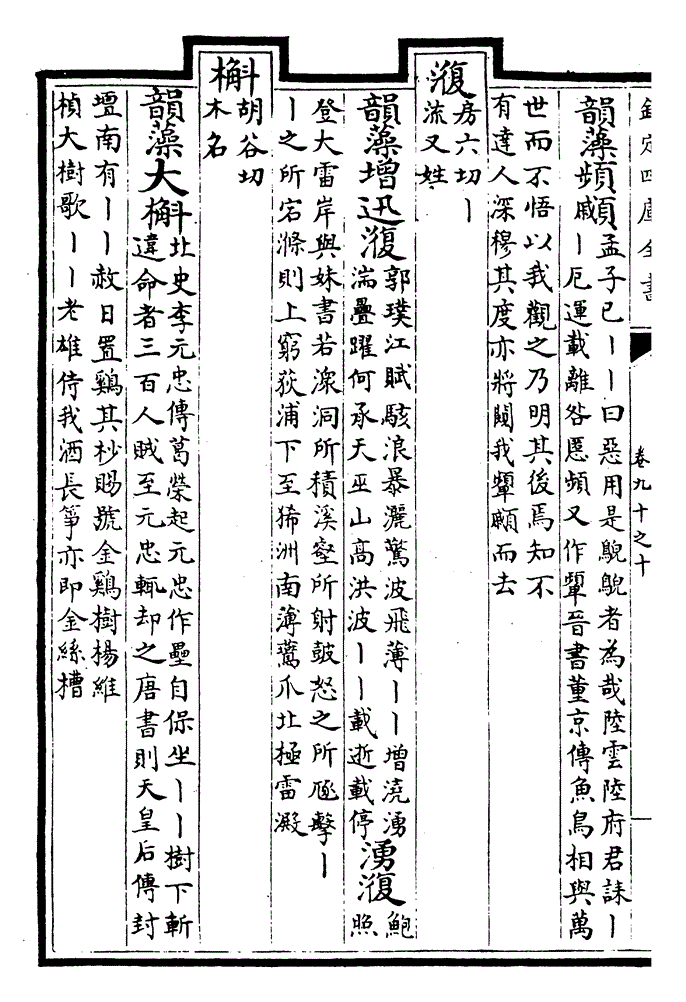 欽定四庫全書
卷九十之十
韻藻頻顣孟子已丨丨曰惡用是鶃鶃者為哉陸雲陸府君誄丨
慼丨厄運載離咎慝頻又作顰晉書董京傳魚鳥相與萬
世而不悟以我觀之乃明其後焉知不
有達人深穆其度亦將闚我顰顣而去
澓房六切丨
流又姓
韻藻增迅澓郭璞江賦駭浪暴灑驚波飛薄丨丨增澆湧
湍疊躍何承天巫山高洪波丨丨載逝載停
湧澓鮑
照
登大雷岸與妹書若潀洞所積溪壑所射鼓怒之所豗擊丨
丨之所宕滌則上窮荻浦下至狶洲南薄鷰爪北極雷澱
槲胡谷切
木名
韻藻大槲北史李元忠傳葛榮起元忠作壘自保坐丨丨樹下斬
違命者三百人賊至元忠輒却之唐書則天皇后傳封
壇南有丨丨赦日置鷄其杪賜號金鷄樹楊維
楨大樹歌丨丨老雄侍我酒長箏亦即金絲槽